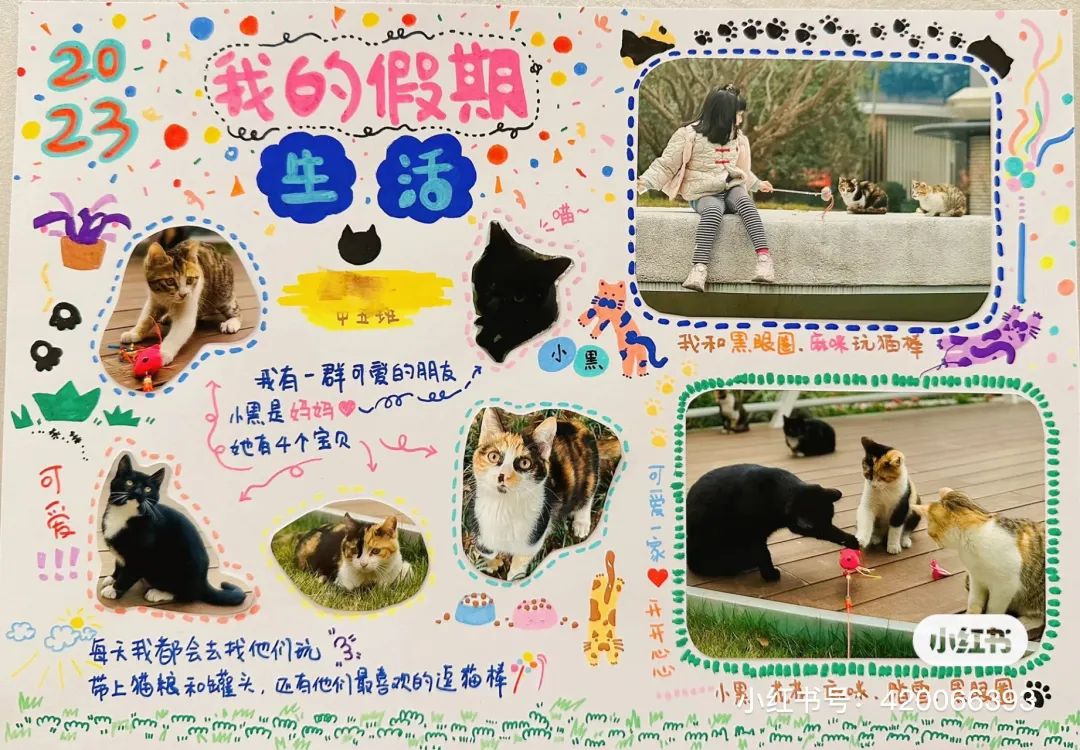 2023
我的假期
生活
喵~
甲五班
小黑
我和黑眼圈、麻咪玩猫棒
我有一群可爱的朋友
小黑是妈妈
她有4个宝贝
可爱!!!
可爱一家
开开心心
每天我都会去找他们玩
带上猫粮和罐头，还有他们最喜欢的逗猫棒
小红书
小黑
黑眼圈
小红书号：420066393